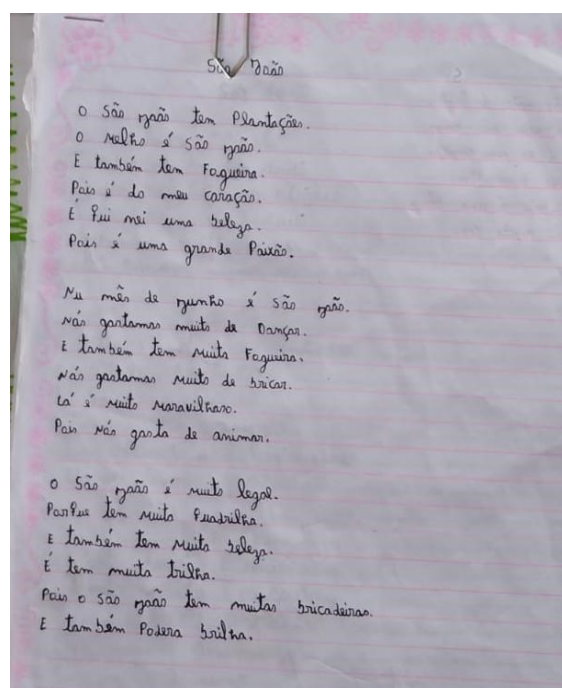 São João
O São João tem Plantações.
O Melho é São João.
E também tem Fogueira.
Pois é do meu coração.
É Qui nei uma beleza.
Pois é uma grande Paixão.
Nu mês de Junho é São João.
Nós gostamos muito de Dançar.
E também tem Muita Fogueira.
Nós gostamos Muito de bricar.
Lá é Muito Maravilhoso.
Pois Nós gosta de animar.
O São João é Muito legal.
PorQue tem Muita Quadrilha.
E também tem Muita beleza.
É tem muita trilha.
Pois o São João tem muitas bricadeiras.
E também Podera brilha.